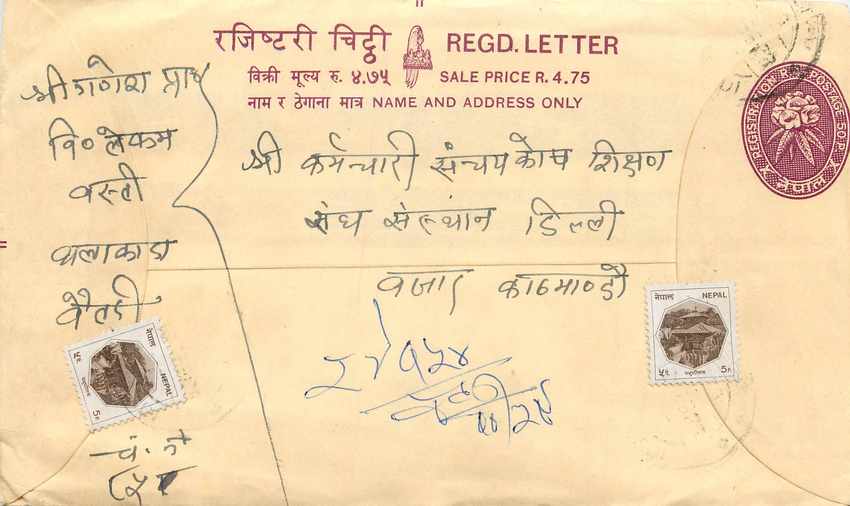 रजिष्टरी चिट्ठी REGD. LETTER
विक्री मूल्य रु. ४.७५ SALE PRICE R. 4.75
नाम र ठेगाना मात्र NAME AND ADDRESS ONLY
REGISTRATION & POSTAGE 50 P.
नेपाल
श्री गणेश
वि० लेकम
वस्ती
थलाकाडा
वैतडी
श्री कर्मचारी संन्चयकोष शिक्षण
संघ संस्थान डिल्ली
वजार काठमाण्डौ
नेपाल NEPAL
५पै. 5P.
पशुपतिनाथ
नेपाल NEPAL
५पै. 5P.
पशुपतिनाथ